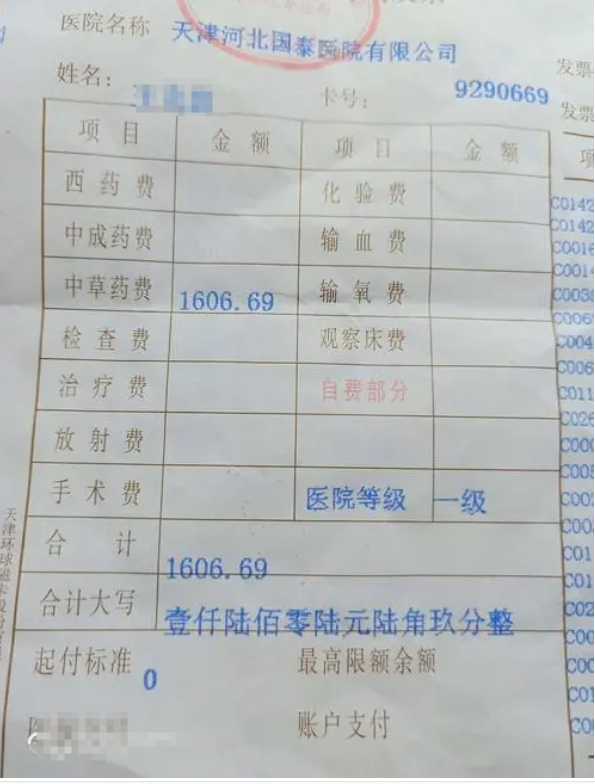 医院名称 天津河北国泰医院有限公司
姓名: 卡号: 9290669
发票
发票
项目 金额 项目 金额
西药费 化验费
中成药费 输血费
中草药费 1606.69 输氧费
检查费 观察床费
治疗费 自费部分
放射费
手术费 医院等级 一级
合计 1606.69
合计大写 壹仟陆佰零陆元陆角玖分整
起付标准 0 最高限额余额
账户支付
C0142
C0142
C0016
C0014
C0039
C006
C004
C006
C011
C026
C000
C005
C003
C003
C011
C011
C02
C00
C00
C01
C00
天津环球磁卡股份有限